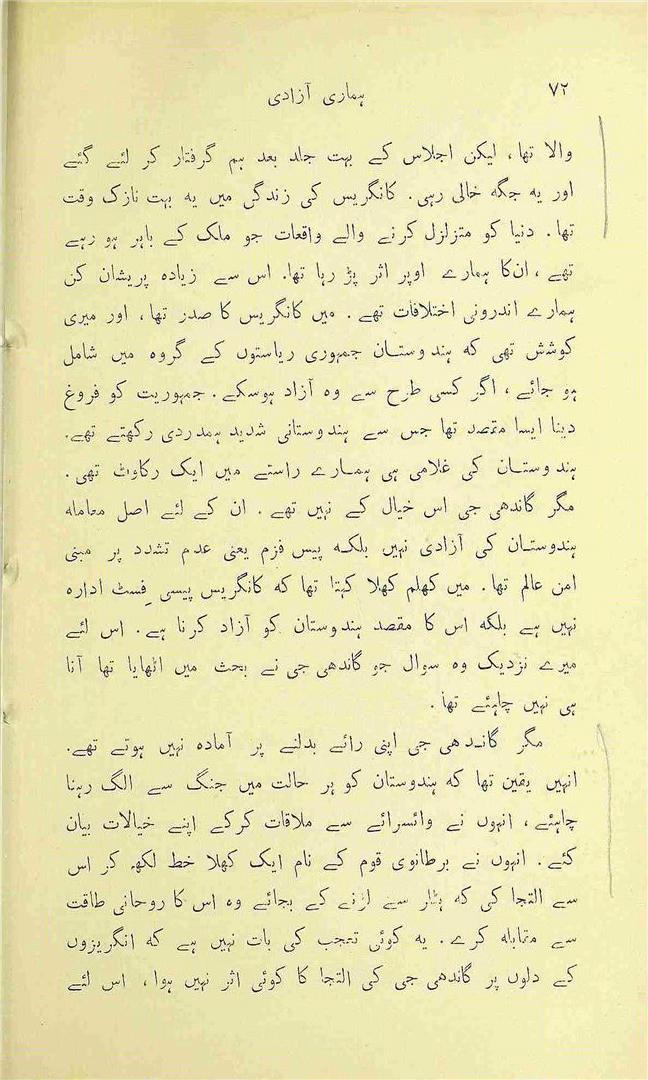 ۷۲
ہماری آزادی
والا تھا، لیکن اجلاس کے بہت جلد بعد ہم گرفتار کر لئے گئے
اور یہ جگہ خالی رہی۔ کانگریس کی زندگی میں یہ بہت نازک وقت
تھا۔ دنیا کو متزلزل کرنے والے واقعات جو ملک کے باہر ہو رہے
تھے، ان‌کا ہمارے اوپر اثر پڑ رہا تھا۔ اس سے زیادہ پریشان کن
ہمارے اندرونی اختلافات تھے۔ میں کانگریس کا صدر تھا، اور میری
کوشش تھی کہ ہندوستان جمہوری ریاستوں کے گروہ میں شامل
ہو جائے، اگر کسی طرح سے وہ آزاد ہوسکے۔ جمہوریت کو فروغ
دینا ایسا مقصد تھا جس سے ہندوستانی شدید ہمدردی رکھتے تھے۔
ہندوستان کی غلامی ہی ہمارے راستے میں ایک رکاوٹ تھی۔
مگر گاندھی جی اس خیال کے نہیں تھے۔ ان کے لئے اصل معاملہ
ہندوستان کی آزادی نہیں بلکہ پیس فزم یعنی عدم تشدد پر مبنی
امن عالم تھا۔ میں کھلم کھلا کہتا تھا کہ کانگریس پیسی فِسٹ ادارہ
نہیں ہے بلکہ اس کا مقصد ہندوستان کو آزاد کرنا ہے۔ اس لئے
میرے نزدیک وہ سوال جو گاندھی جی نے بحث میں اٹھایا تھا آنا
ہی نہیں چاہئے تھا۔
مگر گاندھی جی اپنی رائے بدلنے پر آمادہ نہیں ہوتے تھے۔
انہیں یقین تھا کہ ہندوستان کو ہر حالت میں جنگ سے الگ رہنا
چاہئے، انہوں نے وائسرائے سے ملاقات کرکے اپنے خیالات بیان
کئے۔ انہوں نے برطانوی قوم کے نام ایک کھلا خط لکھ کر اس
سے التجا کی کہ ہٹلر سے لڑنے کے بجائے وہ اس کا روحانی طاقت
سے مقابلہ کرے۔ یہ کوئی تعجب کی بات نہیں ہے کہ انگریزوں
کے دلوں پر گاندھی جی کی التجا کا کوئی اثر نہیں ہوا، اس لئے